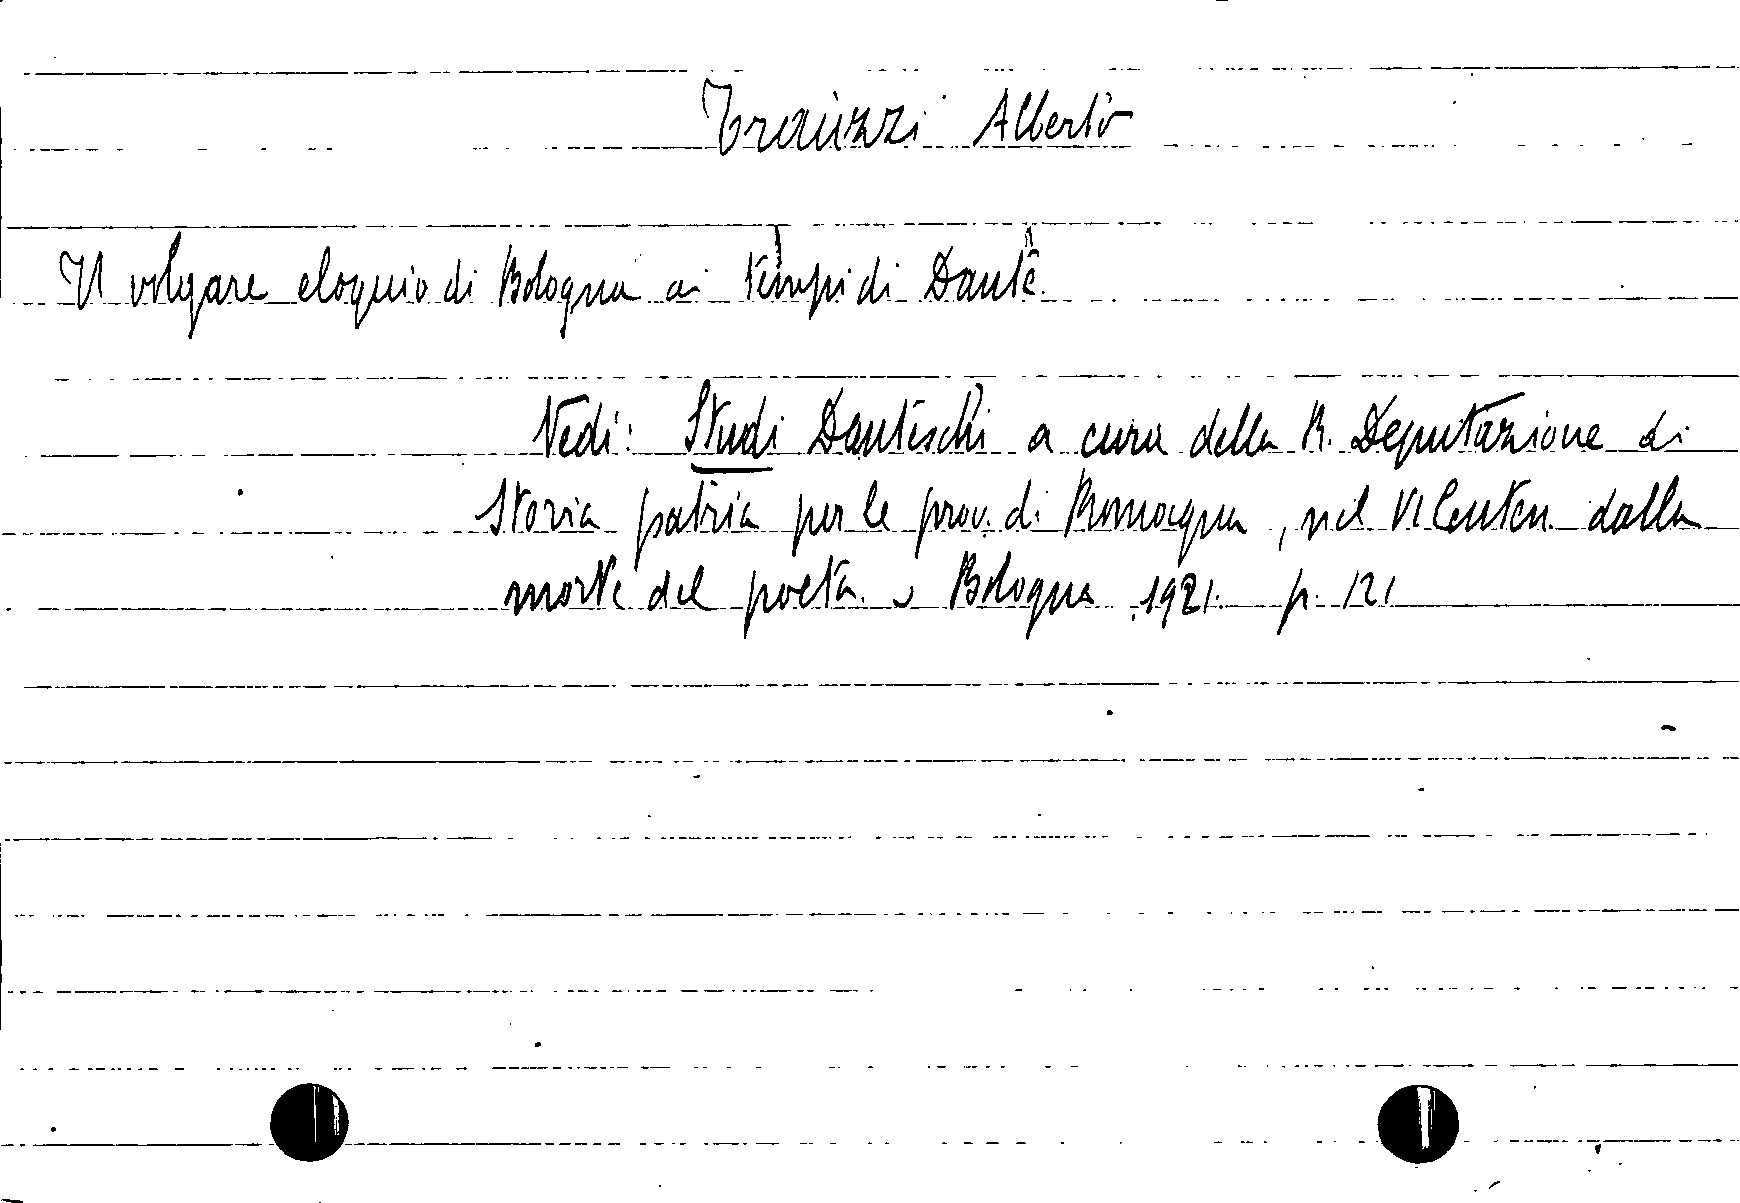 Trauzzi Alberto
Il volgare eloquio di Bologna ai tempi di Dante.
Vedi: Studi Danteschi a cura della R. Deputazione di
Storia patria per le prov. di Romagna, nel VI Centen. dalla
morte del poeta. Bologna 1921. p. 121